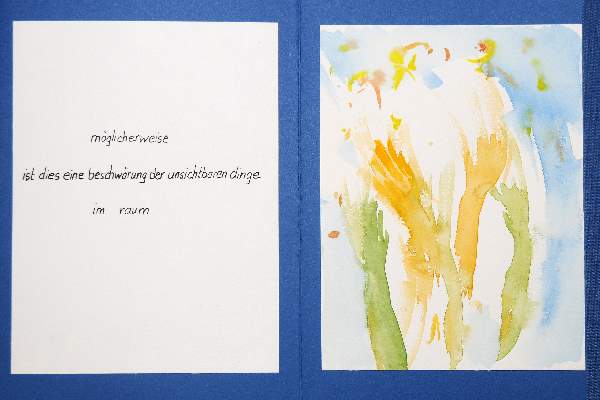 möglicherweise
ist dies eine beschwörung der unsichtbaren dinge
im raum